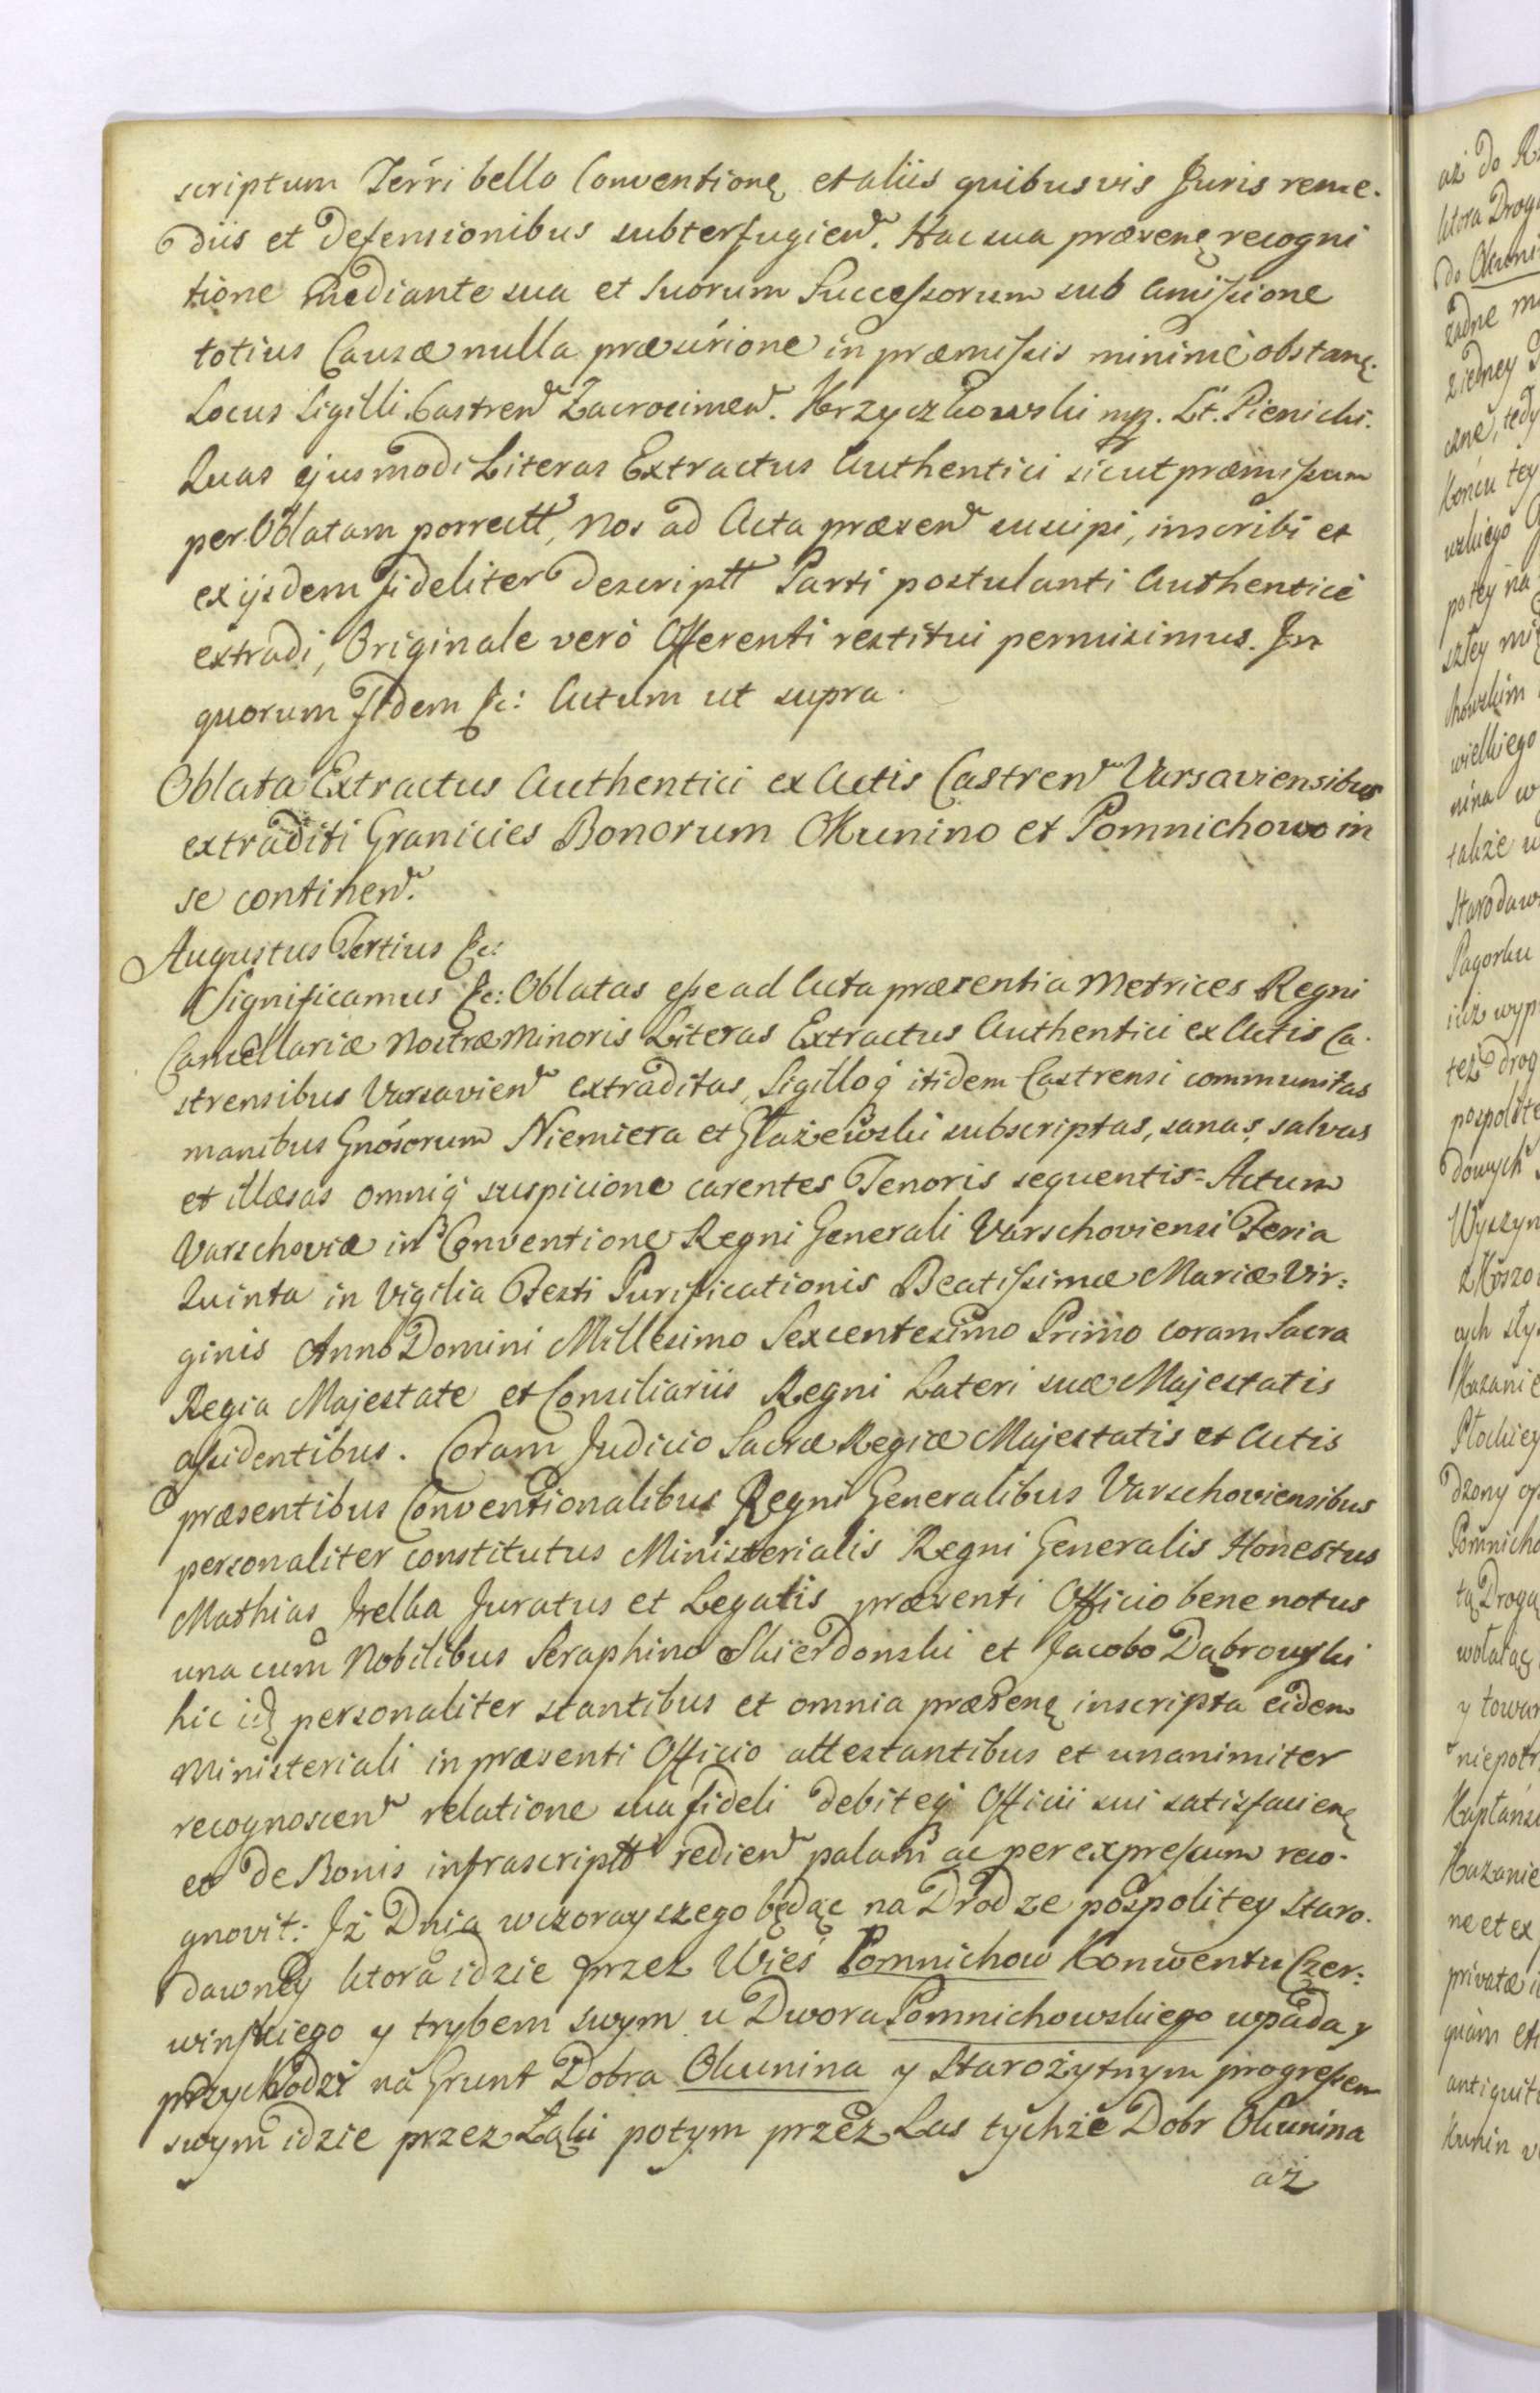 scriptum Terri bello Conventionę et aliis quibusvis Juris reme-
diis et Defensionibus subterfugien. Hac sua præsenę recogni
tione mediante sua et suorum Successorum sub amissione
totius Causæ nulla præscriõne in præmissis minimè obstanę.
Locus Sigilli. Castren Zacrocimen. Krzyczkowski mp. Lt. Pienicki.
Quas ejusmodi Literas Extractus Authentici sicut præmissum
per Oblatam porrectt, Nos ad Acta præsen suscipi, inscribi et
ex ijsdem fideliter descriptt Parti postulanti Authenticè
extradi, Originale verò Offerenti restitui permisimus. In
quorum Fidem &c: Actum ut supra.
Oblata Extractus Authentici ex Actis Castren Varsaviensibus
extraditi Granicies Bonorum Okunino et Pomnichowo in
se continen.
Augustus Tertius &c:
Significamus &c: Oblatas esse ad Acta præsentia Metrices Regni
Cancellariæ Nostræ Minoris Literas Extractus Authentici ex Actis Ca-
strensibus Varsavien extraditas, Sigilloq́ itidem Castrensi communitas
manibus Gnósorum Niemiera et Głażewski subscriptas, sanas, salvas
et illæsas omniq́ suspicione carentes Tenoris sequentis= Actum
Varschoviæ in Conventione Regni Generali Varschoviensi Feria
Quinta in Vigilia Festi Purificationis Beatissimæ Mariæ Vir:
ginis Anno Domini Millesimo Sexcentesimo Primo coram Sacra
Regia Majestate et Consiliariis Regni Lateri suæ Majestatis
assidentibus. Coram Judicio Sacræ Regiæ Majestatis et Actis
præsentibus Conventionalibus Regni Generalibus Varschoviensibus
personaliter constitutus Ministerialis Regni Generalis Honestus
Mathias Juratus et Legalis præsenti Officio bene notus
una cum Nobilibus Seraphino Skierdonski et Jacobo Dąbrowski
hic idę personaliter stantibus et omnia præsenę inscripta eidem
Ministeriali in præsenti Officio attestantibus et unanimiter
recognoscen relatione sua fideli debiteq́ Officii sui satisfacienę
et de Bonis infrascriptt redien palam ac per expressum reco-
gnovit: Iż Dnia wczorayszego będąc na Drodze pospolitey staro-
dawney ktora idzie przez Wieś Pomnichow Konwentu Czer:
winskiego y trybem swym u Dwora Pomnichowskiego wpada y
przychodzi na Grunt Dobra Okunina y Starożytnym progressem
swym idzie przez Łąki potym przez Las tychże Dobr Okunina
aż